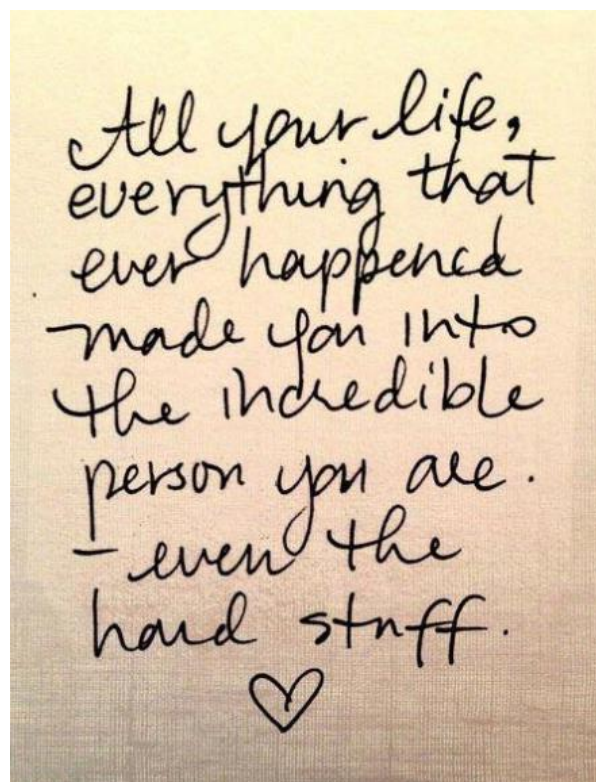 All your life,
everything that
ever happened
made you into
the incredible
person you are.
- even the
hard stuff.